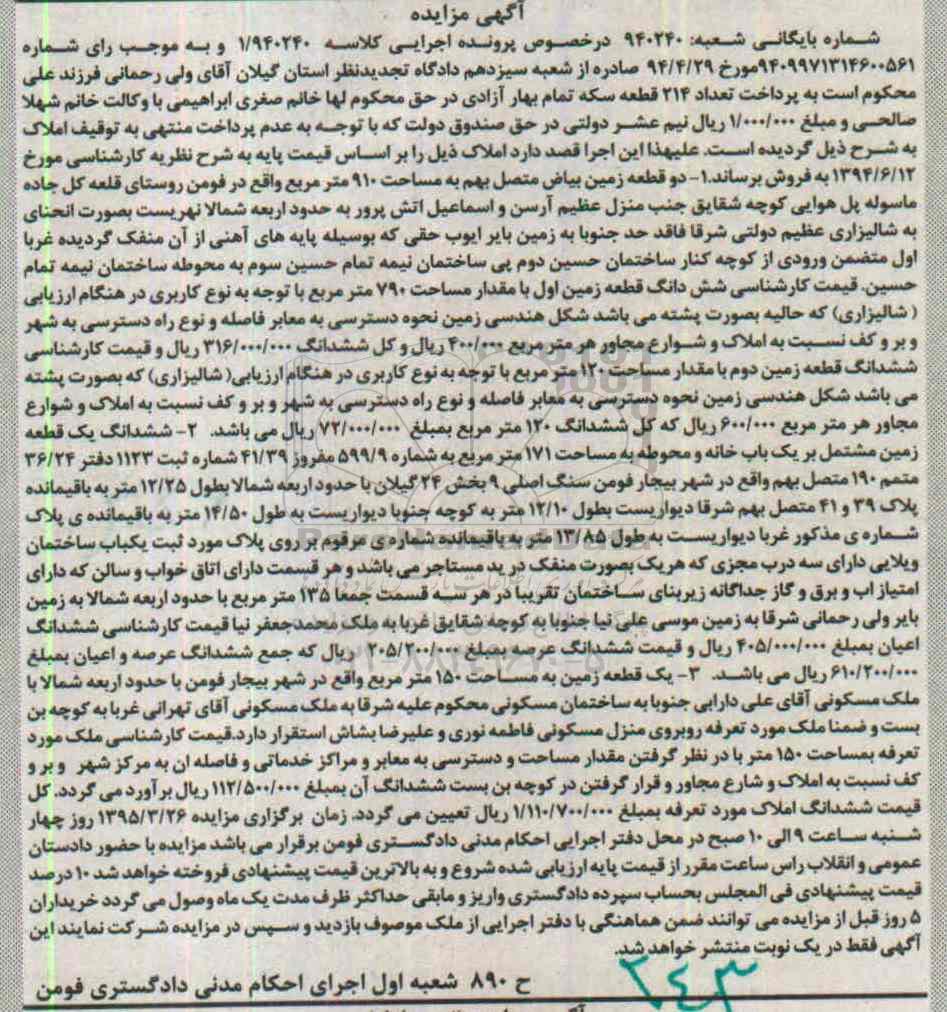 آگهی مزایده
شماره بایگانی شعبه: ۹۴۰۲۴۰ درخصوص پرونده اجرایی کلاسه ۱/۹۴۰۲۴۰ و به موجب رای شماره
۹۴۰۹۹۷۱۳۱۴۶۰۰۵۶۱مورخ ۹۴/۴/۲۹ صادره از شعبه سیزدهم دادگاه تجدیدنظر استان گیلان آقای ولی رحمانی فرزند علی
محکوم است به پرداخت تعداد ۲۱۴ قطعه سکه تمام بهار آزادی در حق محکوم لها خانم صغری ابراهیمی با وکالت خانم شهلا
صالحی و مبلغ ۱/۰۰۰/۰۰۰ ریال نیم عشر دولتی در حق صندوق دولت که با توجه به عدم پرداخت منتهی به توقیف املاک
به شرح ذیل گردیده است. علیهذا این اجرا قصد دارد املاک ذیل را بر اساس قیمت پایه به شرح نظریه کارشناسی مورخ
۱۳۹۴/۶/۱۲ به فروش برساند.۱- دو قطعه زمین بیاض متصل بهم به مساحت ۹۱۰ متر مربع واقع در فومن روستای قلعه کل جاده
ماسوله پل هوایی کوچه شقایق جنب منزل عظیم آرسن و اسماعیل اتش پرور به حدود اربعه شمالا نهریست بصورت انحنای
به شالیزاری عظیم دولتی شرقا فاقد حد جنوبا به زمین بایر ایوب حقی که بوسیله پایه های آهنی از آن منفک گردیده غربا
اول متضمن ورودی از کوچه کنار ساختمان حسین دوم پی ساختمان نیمه تمام حسین سوم به محوطه ساختمان نیمه تمام
حسین. قیمت کارشناسی شش دانگ قطعه زمین اول با مقدار مساحت ۷۹۰ متر مربع با توجه به نوع کاربری در هنگام ارزیابی
( شالیزاری) که حالیه بصورت پشته می باشد شکل هندسی زمین نحوه دسترسی به معابر فاصله و نوع راه دسترسی به شهر
و بر و کف نسبت به املاک و شوارع مجاور هر متر مربع ۴۰۰/۰۰۰ ریال و کل ششدانگ ۳۱۶/۰۰۰/۰۰۰ ریال و قیمت کارشناسی
ششدانگ قطعه زمین دوم با مقدار مساحت ۱۲۰ متر مربع با توجه به نوع کاربری در هنگام ارزیابی( شالیزاری) که بصورت پشته
می باشد شکل هندسی زمین نحوه دسترسی به معابر فاصله و نوع راه دسترسی به شهر و بر و کف نسبت به املاک و شوارع
مجاور هر متر مربع ۶۰۰/۰۰۰ ریال که کل ششدانگ ۱۲۰ متر مربع بمبلغ ۷۲/۰۰۰/۰۰۰ ریال می باشد. ۲- ششدانگ یک قطعه
زمین مشتمل بر یک باب خانه و محوطه به مساحت ۱۷۱ متر مربع به شماره ۵۹۹/۹ مفروز ۴۱/۳۹ شماره ثبت ۱۱۲۳ دفتر ۳۶/۲۴
متمم ۱۹۰ متصل بهم واقع در شهر بیجار فومن سنگ اصلی ۹ بخش ۲۴ گیلان با حدود اربعه شمالا بطول ۱۲/۲۵ متر به باقیمانده
پلاک ۳۹ و ۴۱ متصل بهم شرقا دیواریست بطول ۱۲/۱۰ متر به کوچه جنوبا دیواریست به طول ۱۴/۵۰ متر به باقیمانده ی پلاک
شماره ی مذکور غربا دیواریست به طول ۱۳/۸۵ متر به باقیمانده شماره ی مرقوم بر روی پلاک مورد ثبت یکباب ساختمان
ویلایی دارای سه درب مجزی که هریک بصورت منفک در ید مستاجر می باشد و هر قسمت دارای اتاق خواب و سالن که دارای
امتیاز اب و برق و گاز جداگانه زیربنای ساختمان تقریبا در هر سه قسمت جمعا ۱۳۵ متر مربع با حدود اربعه شمالا به زمین
بایر ولی رحمانی شرقا به زمین موسی علی نیا جنوبا به کوچه شقایق غربا به ملک محمدجعفر نیا قیمت کارشناسی ششدانگ
اعیان بمبلغ ۴۰۵/۰۰۰/۰۰۰ ریال و قیمت ششدانگ عرصه بمبلغ ۲۰۵/۲۰۰/۰۰۰ ریال که جمع ششدانگ عرصه و اعیان بمبلغ
۶۱۰/۲۰۰/۰۰۰ ریال می باشد. ۳- یک قطعه زمین به مساحت ۱۵۰ متر مربع واقع در شهر بیجار فومن با حدود اربعه شمالا با
ملک مسکونی آقای علی دارابی جنوبا به ساختمان مسکونی محکوم علیه شرقا به ملک مسکونی آقای تهرانی غربا به کوچه بن
بست و ضمنا ملک مورد تعرفه روبروی منزل مسکونی فاطمه نوری و علیرضا بشاش استقرار دارد.قیمت کارشناسی ملک مورد
تعرفه بمساحت ۱۵۰ متر با در نظر گرفتن مقدار مساحت و دسترسی به معابر و مراکز خدماتی و فاصله ان به مرکز شهر و بر و
کف نسبت به املاک و شارع مجاور و قرار گرفتن در کوچه بن بست ششدانگ آن بمبلغ ۱۱۲/۵۰۰/۰۰۰ ریال بر آورد می گردد. کل
قیمت ششدانگ املاک مورد تعرفه بمبلغ ۱/۱۱۰/۷۰۰/۰۰۰ ریال تعیین می گردد. زمان برگزاری مزایده ۱۳۹۵/۳/۲۶ روز چهار
شنبه ساعت ۹ الی ۱۰ صبح در محل دفتر اجرایی احکام مدنی دادگستری فومن برقرار می باشد مزایده با حضور دادستان
عمومی و انقلاب راس ساعت مقرر از قیمت پایه ارزیابی شده شروع و به بالاترین قیمت پیشنهادی فروخته خواهد شد ۱۰ درصد
قیمت پیشنهادی فی المجلس بحساب سپرده دادگستری واریز و مابقی حداکثر ظرف مدت یک ماه وصول می گردد خریداران
۵ روز قبل از مزایده می توانند ضمن هماهنگی با دفتر اجرایی از ملک موصوف بازدید و سپس در مزایده شرکت نمایند این
آگهی فقط در یک نوبت منتشر خواهد شد.
۲۴۳
ح ۸۹۰ شعبه اول اجرای احکام مدنی دادگستری فومن